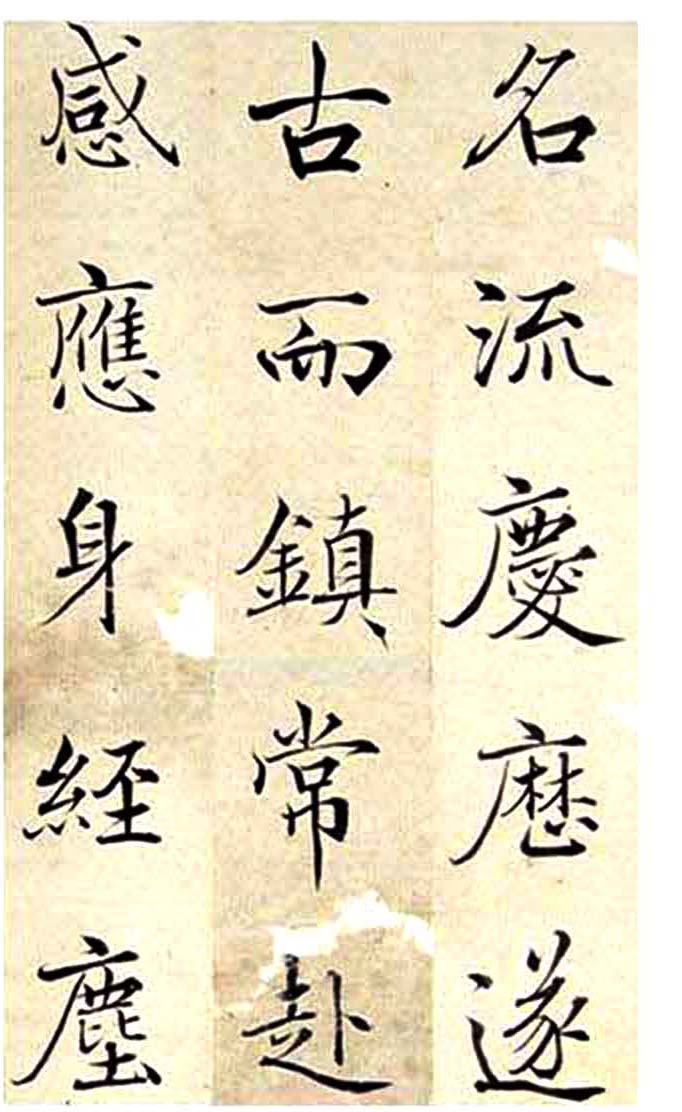 名流慶歷遂
古而鎮常赴
感應身經塵